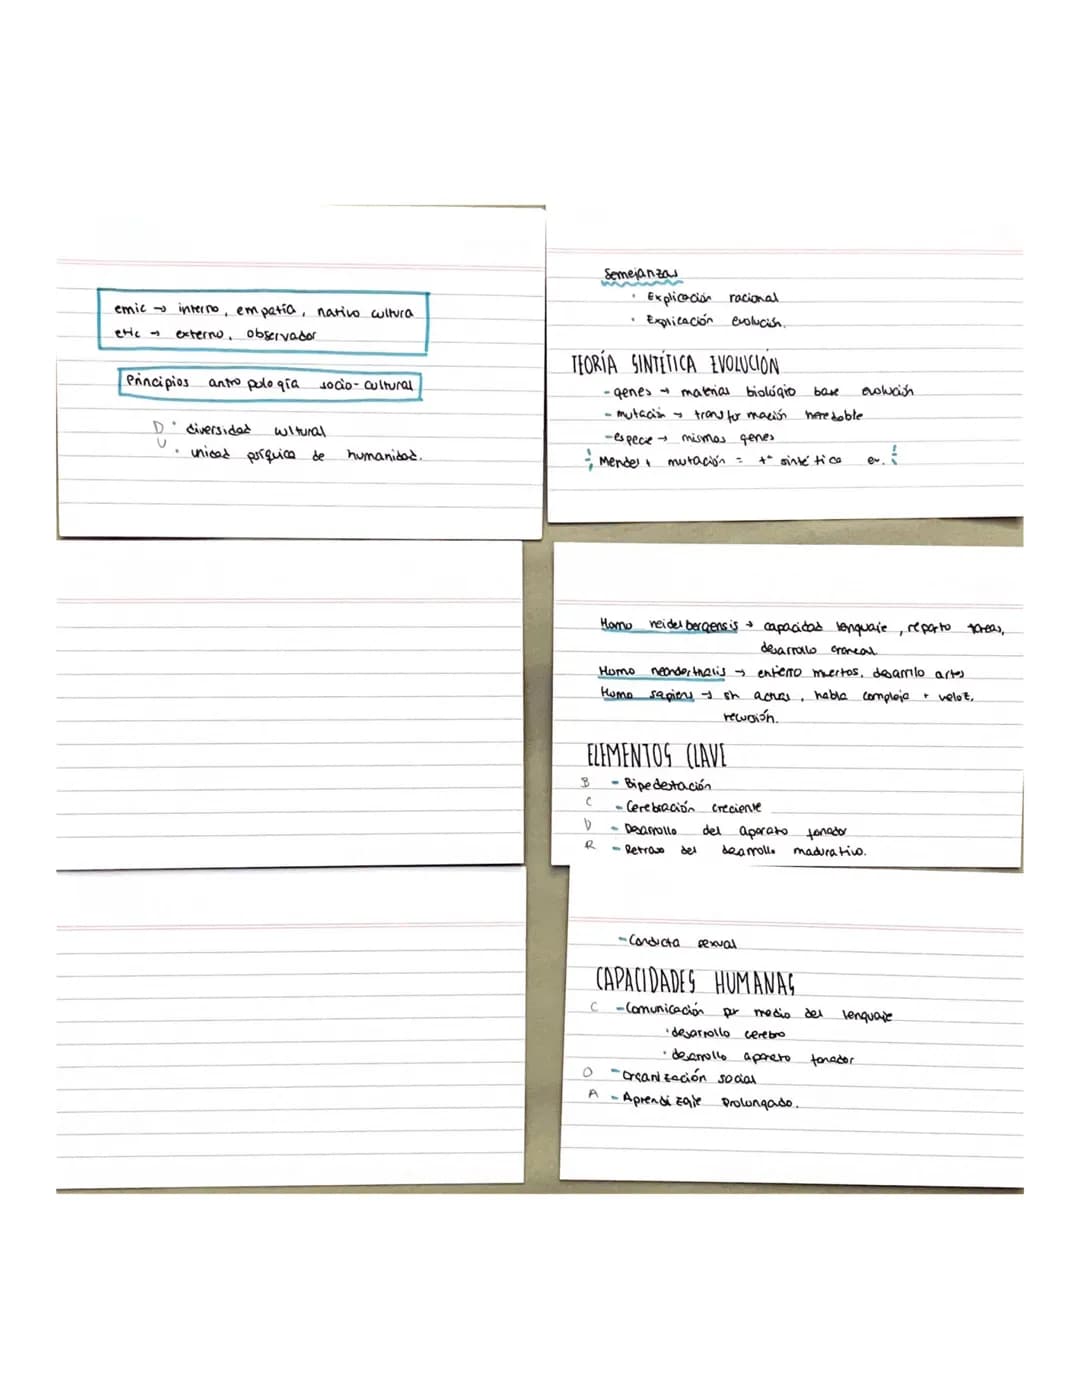 emic → interno, empatía, nativo cultura
etic → externo, observador
Principios antropología socio-cultural
D · diversidad cultural
U · unidad psíquica de humanidad.
Semejanzas
· Explicación racional
· Explicación evolución.
TEORÍA SINTÉTICA EVOLUCIÓN
- genes → materias biológico base evolución
- mutación → transformación heredable
- especie → mismos genes
Mendel + mutación = tª sintética ev.
Homo heidelbergensis → capacidad lenguaje, reparto tareas,
desarrollo craneal
Homo neanderthalis → entierro muertos, desarrllo artes
Homo sapiens → habla compleja + veloz,
ELEMENTOS CLAVE
B - Bipedestación
C - Cerebración creciente
D - Desarrollo del aparato fonador
R - Retraso del desarrollo madurativo.
- Conducta sexual
CAPACIDADES HUMANAS
C - Comunicación por medio del lenguaje
· desarrollo cerebro
· desarrollo aparato fonador
O - Organización social
A - Aprendizaje prolongado.